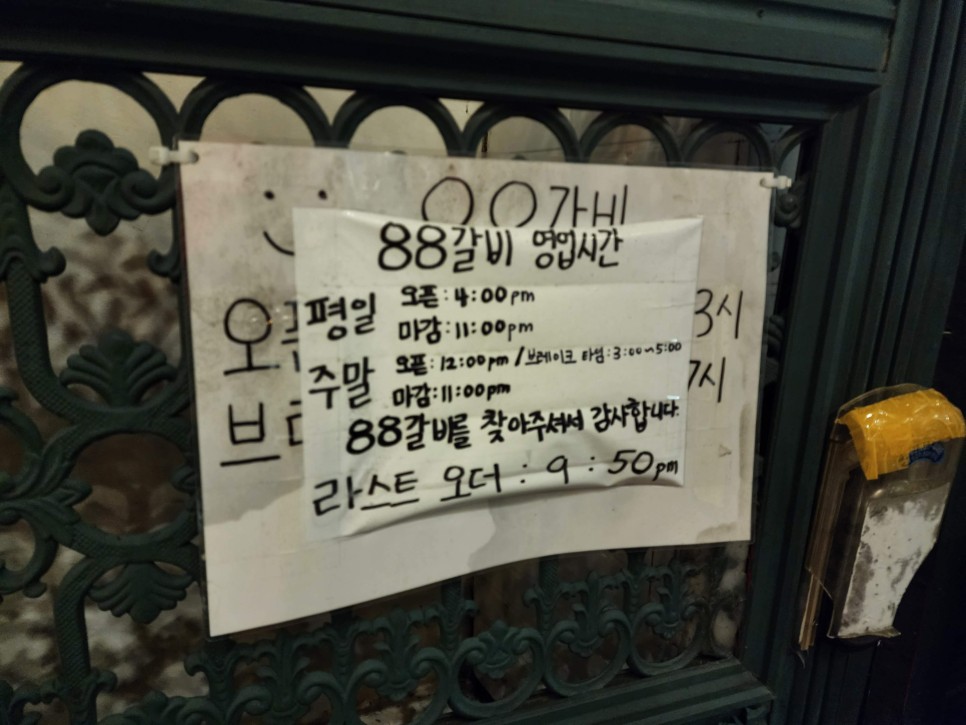 88갈비
88갈비 영업시간
평일 오픈:4:00pm
마감:11:00pm
주말 오픈:12:00pm/브레이크 타임:3:00~5:00
마감:11:00pm
88갈비를 찾아주셔서 감사합니다.
라스트 오더:9:50pm
3시
7시